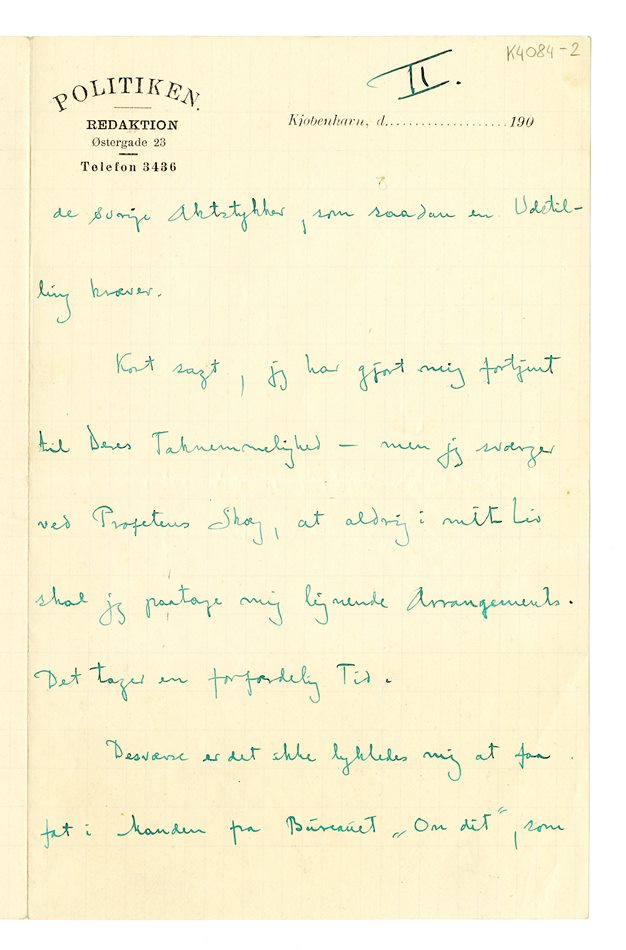 K4084-2
II.
POLITIKEN.
REDAKTION
Østergade 23
Telefon 3436
Kjøbenhavn, d. .................... 190
de øvrige Aktstykker, som saadan en Udstil-
ling kræver.
Kort sagt, jeg har gjort mig fortjent
til Deres Taknemmelighed — men jeg sværger
ved Profetens Skæg, at aldrig i mit Liv
skal jeg paatage mig lignende Arrangements.
Det tager en forfærdelig Tid.
Desværre er det ikke lykkedes mig at faa
fat i Manden fra Bureauet „On dit", som